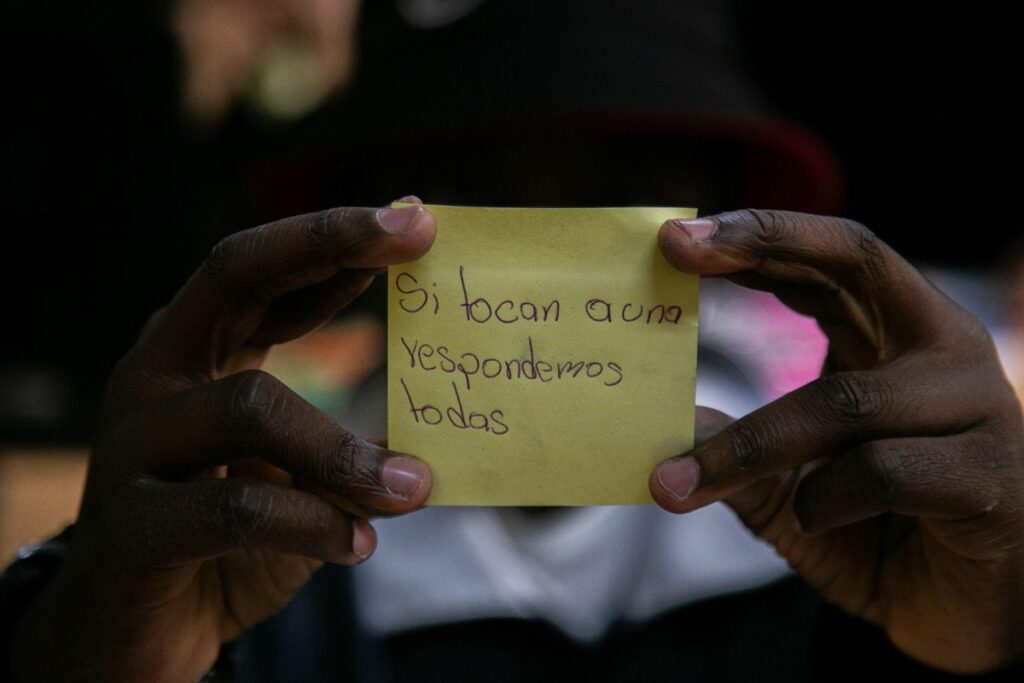 Si tocan a una
respondemos
todas